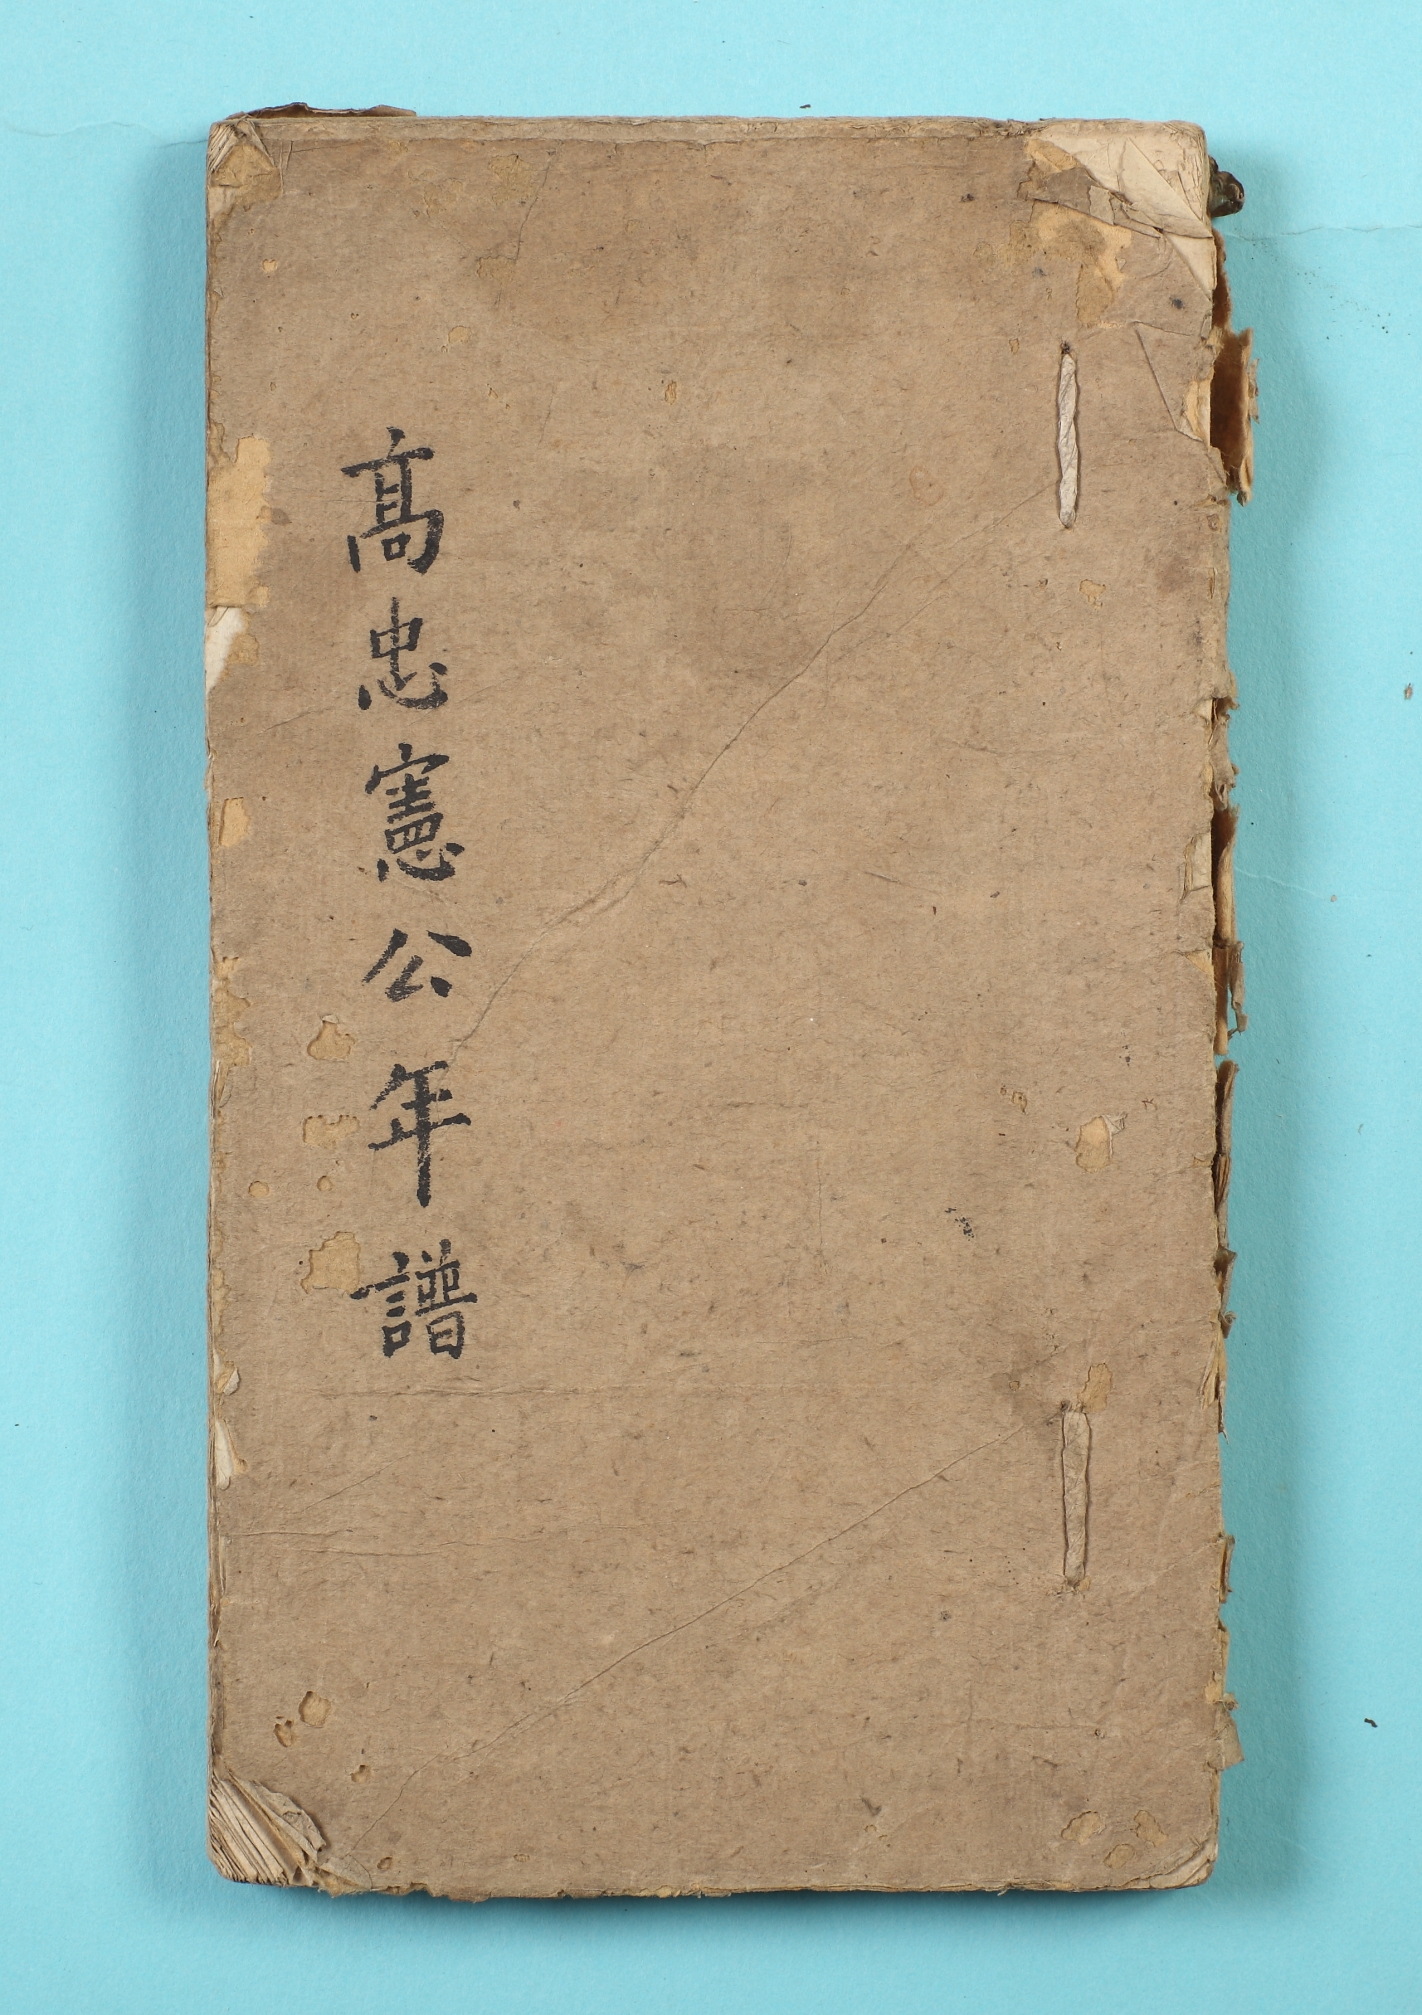 高忠憲公年譜